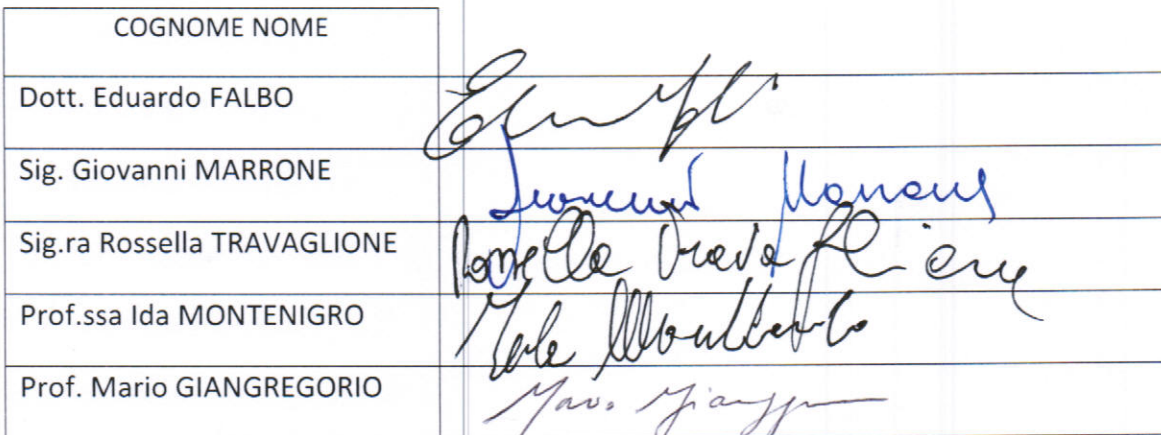 COGNOME NOME
Dott. Eduardo FALBO
Sig. Giovanni MARRONE
Giovanni Marrone
Sig.ra Rossella TRAVAGLIONE
Rossella Travaglione
Prof.ssa Ida MONTENIGRO
Prof. Mario GIANGREGORIO